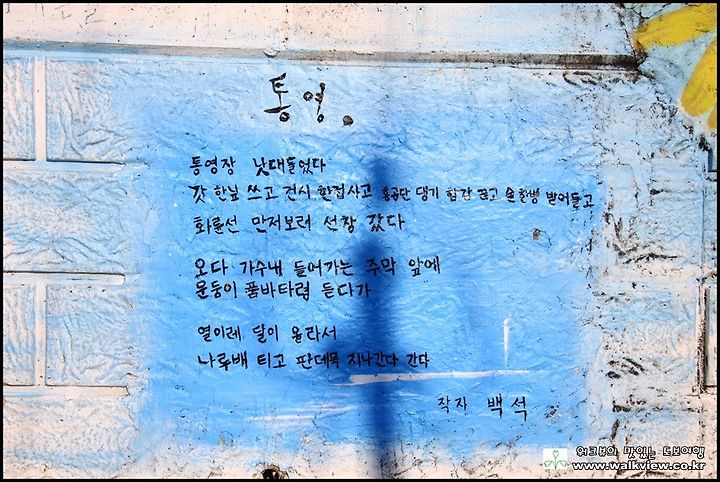 통영.
통영장 낫대들었다
갓 한닢 쓰고 건시 한접사고 홍공단 댕기 한감 끊고 술한병 받어들고
화륜선 만저보려 선창 갔다
오다 가수내 들어가는 주막 앞에
문둥이 품바타령 듣다가
열이레 달이 올라서
나룻배 타고 판데목 지나간다 간다
작자 백석
워크뷰의 맛있는 도보여행
www.walkview.co.kr